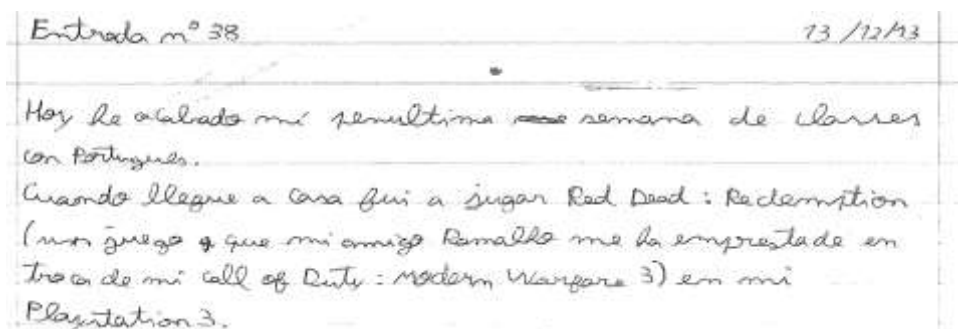 Entrada nº 38 13/12/13
Hoy he acabado mi penultima semana de classes
con Portugues.
Cuando llegue a casa fui a jugar Red Dead : Redemption
(un juego que mi amigo Ramalho me ha emprestade en
troca de mi Call of Duty : Modern Warfare 3) en mi
Playstation 3.